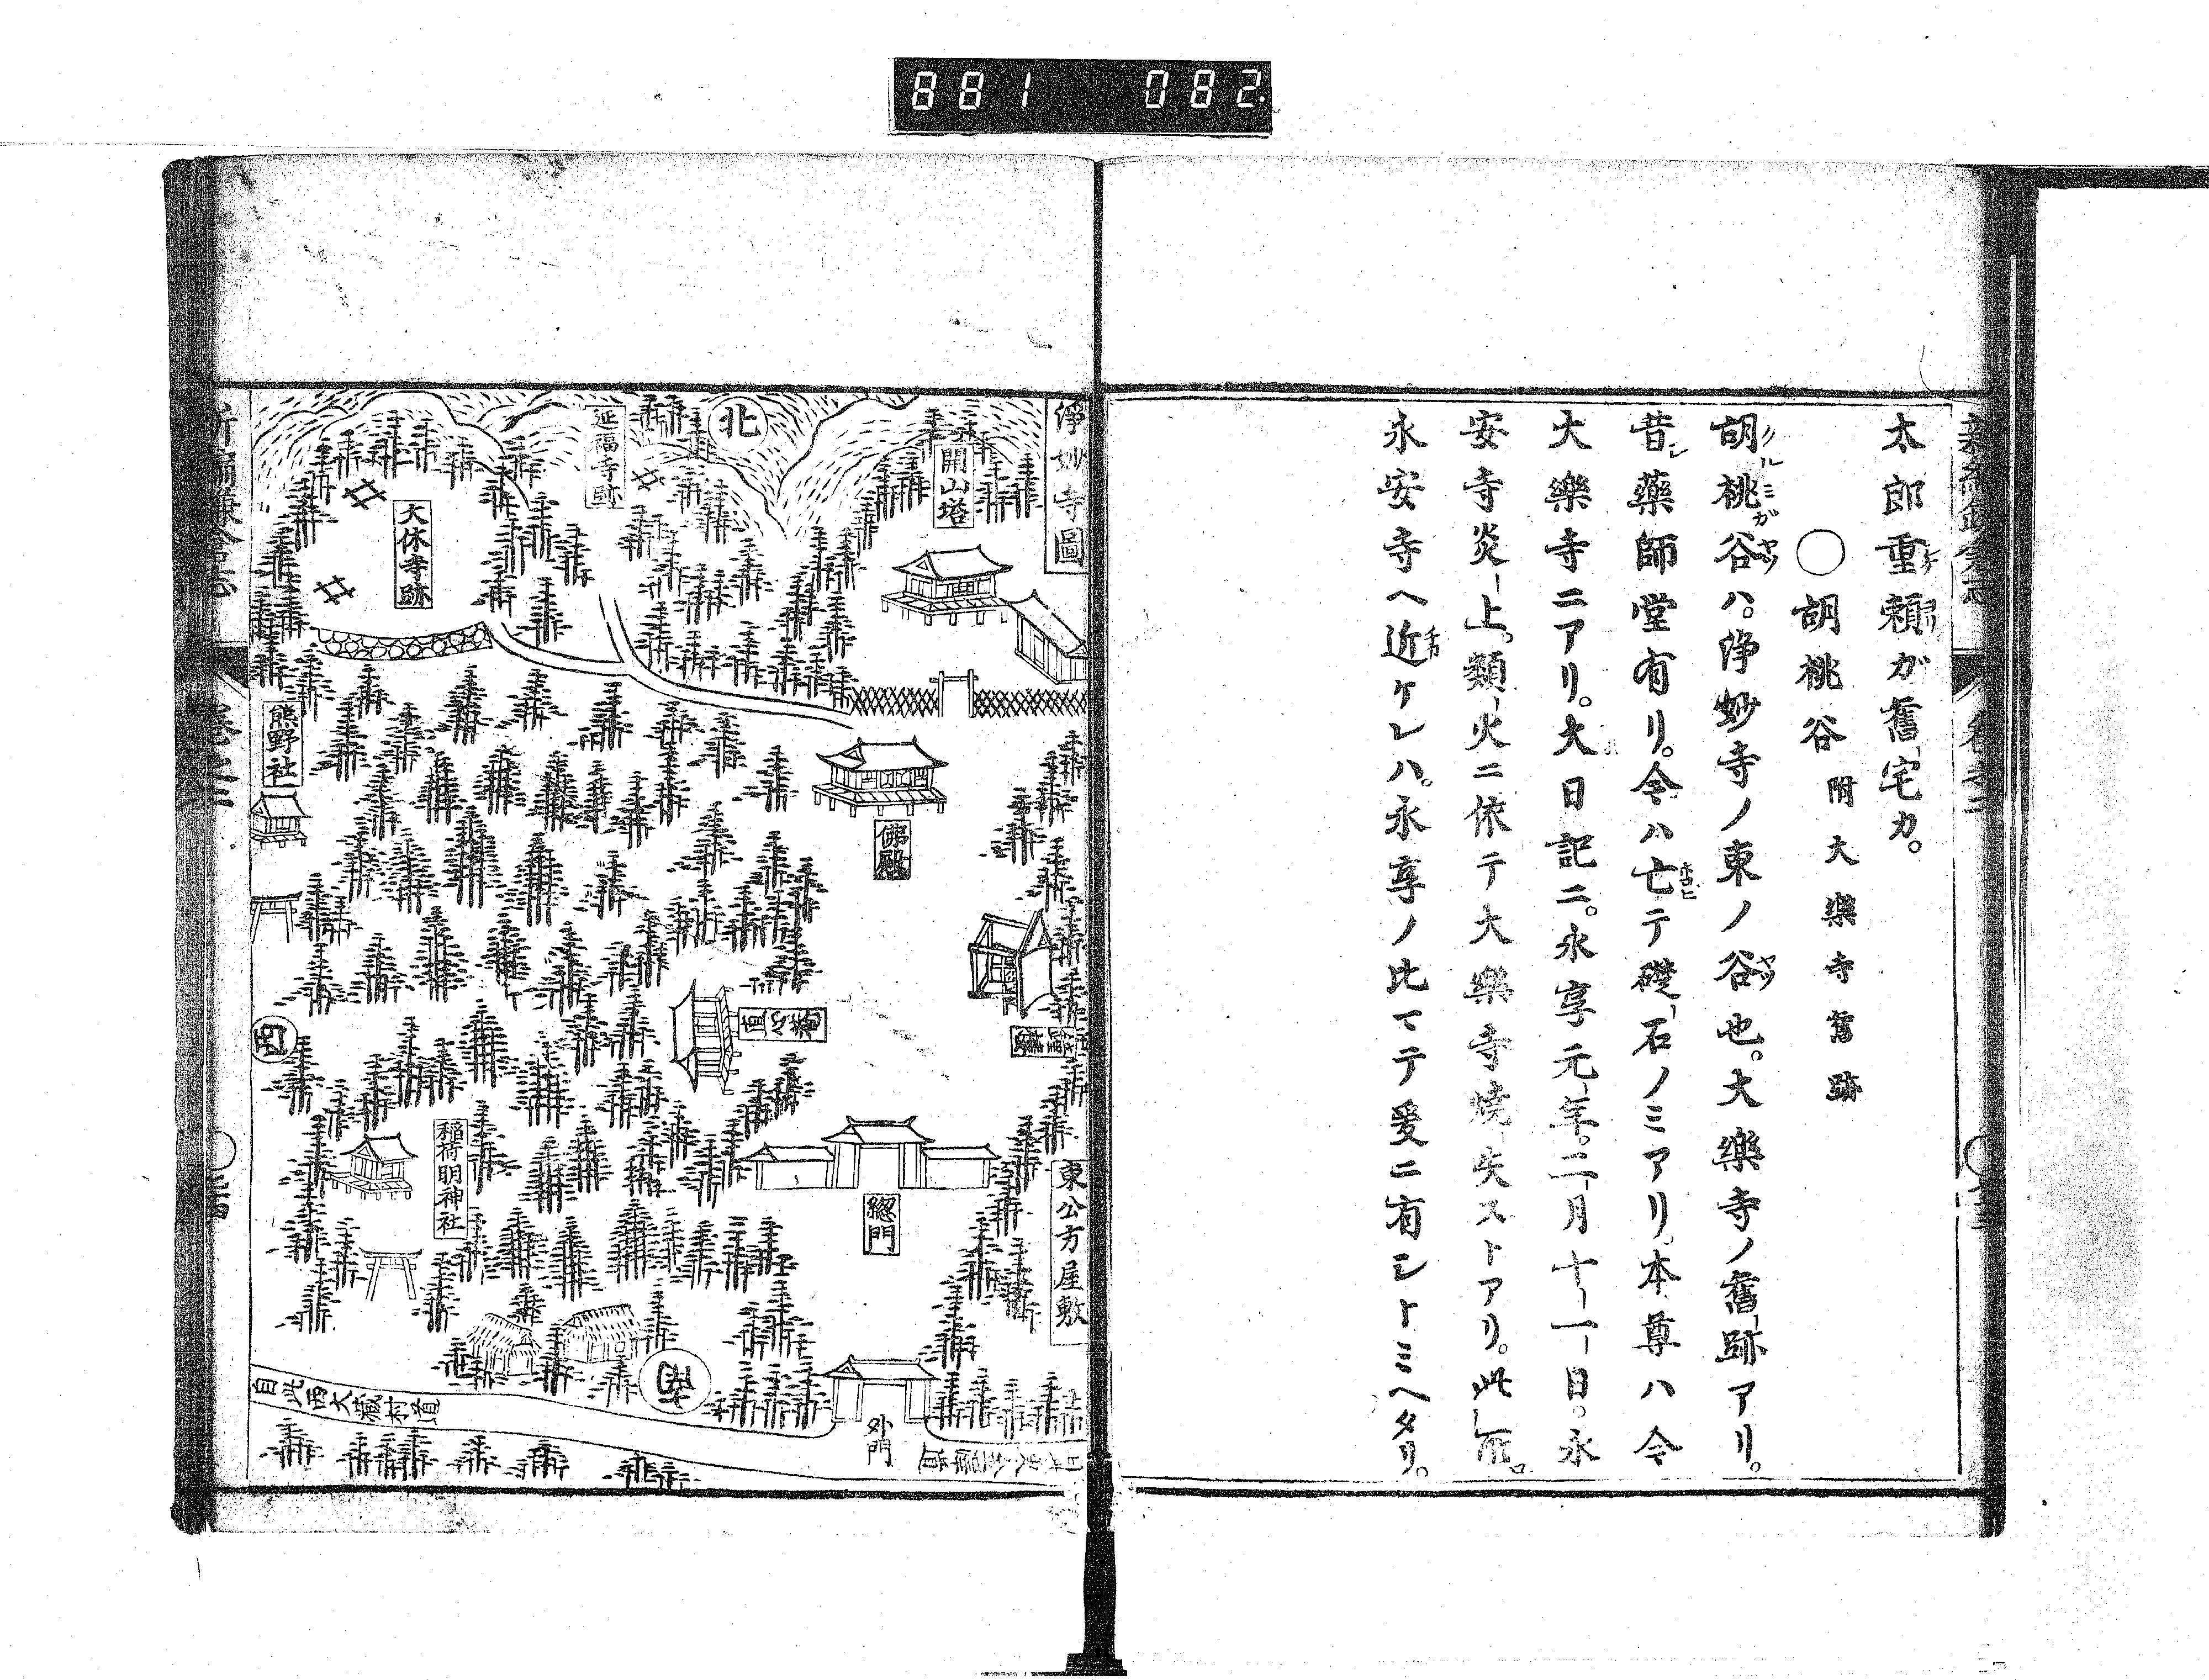 881 082
太郎重頼が舊宅カ。
〇胡桃谷 附大樂寺舊跡
胡桃谷ハ。浄妙寺ノ東ノ谷也。大樂寺ノ舊跡アリ。
昔シ藥師堂有リ。今ハ亡テ礎石ノミアリ。本尊ハ今
大樂寺ニアリ。大日記ニ。永享元年。二月十一日。永
安寺炎上。類火ニ依テ大樂寺焼失ストアリ。此所。
永安寺ヘ近ケレハ。永享ノ比マテ爰ニ有シトミヘタリ。
浄妙寺圖
開山塔
北
延福寺跡
大休寺跡
熊野社
佛殿
鐘樓
直心菴
西
稲荷明神社
總門
東公方屋敷
外門
自此西大蔵村道